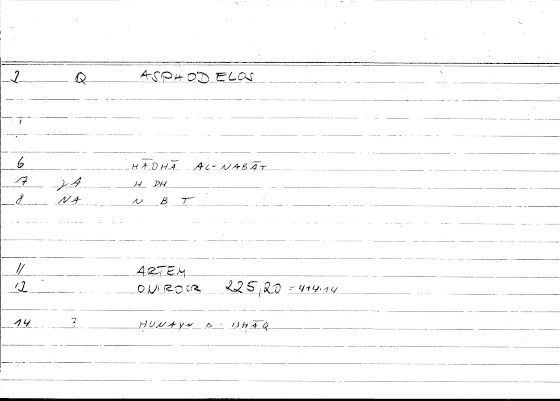 2 Q ASPHODELOS
6 HĀDHĀ AL-NABĀT
7 H DH
8 NA N B T
11 ARTEM
12 ONIROCR 225,20 = 414.14
14 ? ḤUNAYN B. ISḤĀQ